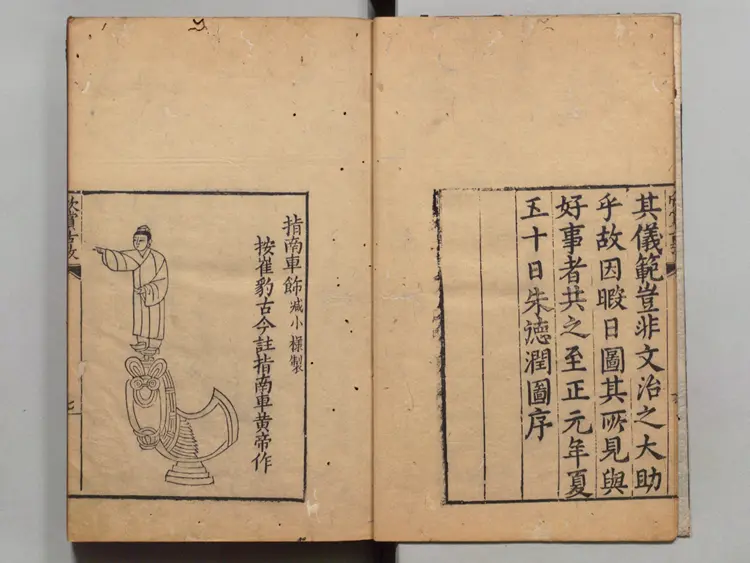 其儀範豈非文治之大助
乎故因暇日圖其所見與
好事者共之至正元年夏
五十日朱德潤圖序
指南車飾減小樣製
按崔豹古今註指南車黄帝作
七